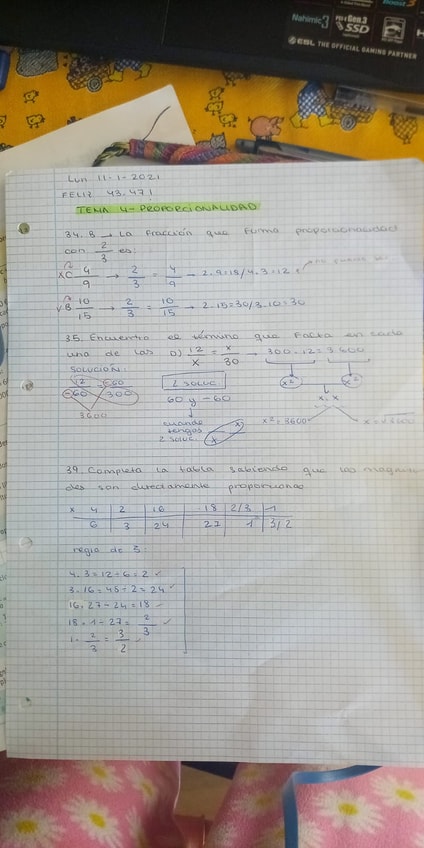 Nahimic 3
PCIe Gen.3
SSD
ESL THE OFFICIAL GAMING PARTNER
Lun 11-1-2021
FELIZ 43.471
TEMA 4-PROPORCIONALIDAD
34. B → La fracción que forma proporcionalidad
con 2/3 es:
x C 4/9 → 2/3 = 4/9 → 2.9=18/4.3=12
v B 10/15 → 2/3 = 10/15 → 2.15=30/3.10=30
35. Encuentra el término que falta en cada
una de las D) 12/x = x/30 → 300.12=3.600
SOLUCIÓN:
12 -60
-60 300
3600
2 soluc.
60 y -60
cuando
tengas
2 soluc.
x² x²
x.x
x²=3600
39. Completa la tabla sabiendo que las magnitu-
des son directamente proporcionales
x 4 2 16 18 2/3 1
6 3 24 27 1 3/2
regla de 3:
4.3=12÷6=2 ✓
3.16=48÷2=24 ✓
16.27÷24=18 ✓
18.1÷27= 2/3 ✓
1÷2/3=3/2 ✓